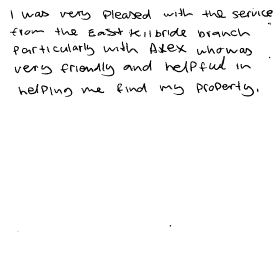 I was very pleased with the service
from the East Kilbride branch
particularly with Alex who was
very friendly and helpful in
helping me find my property.